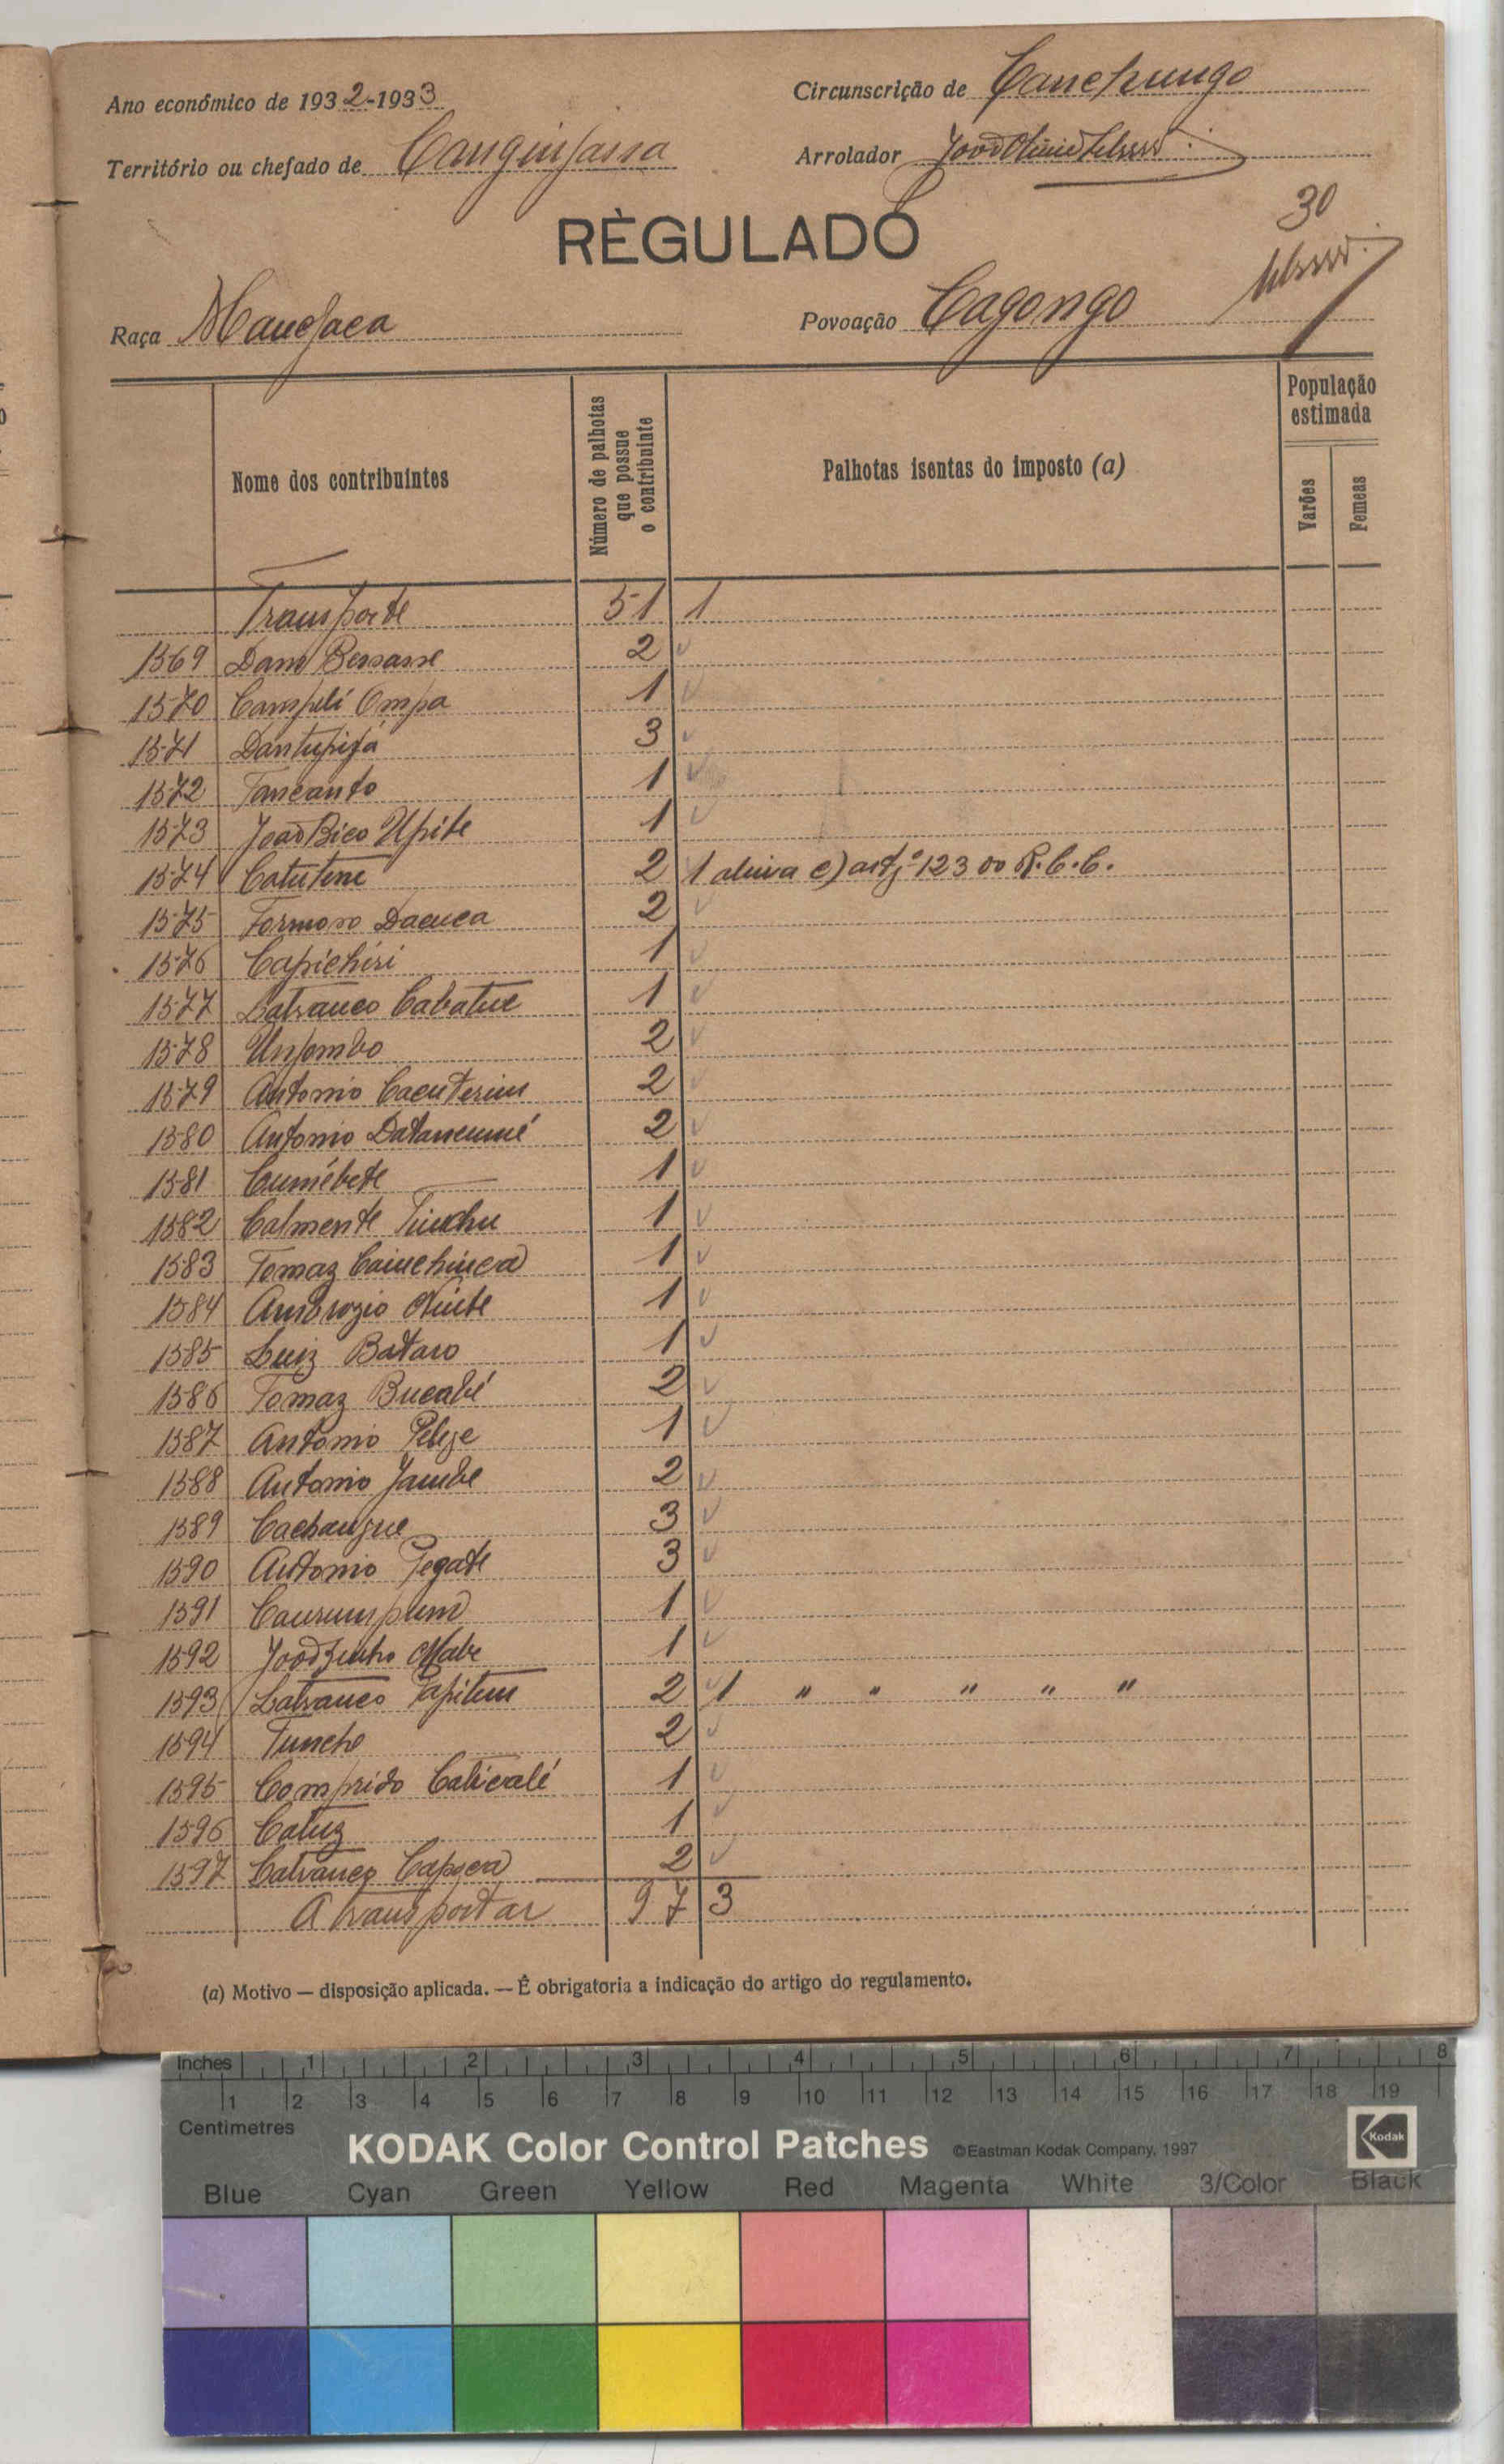 Ano económico de 1932-1933
Circunscrição de Canchungo
Território ou chefado de Canguinjassa
Arrolador João
RÈGULADO
30
Raça Mancjaca
Povoação Cagongo
Nome dos contribuintes
Número de palhotas que possue o contribuinte
Palhotas isentas do imposto (a)
População estimada
Varões
Femeas
Transporte 51 1
1569 Dam Bessasse 2
1570 Campili Ompa 1
1571 Dantupifá 3
1572 Tancanto 1
1573 João Bico Upite 1
1574 Catutene 2 1 alinea e) artº 123 do R.C.C.
1575 Formoso Dacuca 2
1576 Capichiri 1
1577 Batranco Cabatue 1
1578 Unpombo 2
1579 Antonio Cacuterim 2
1580 Antonio Datancumé 2
1581 Cumébete 1
1582 Calmente Tinchu 1
1583 Tomaz Cainchinca 1
1584 Ambrozio Ninte 1
1585 Luiz Bataro 1
1586 Tomaz Bucabé 2
1587 Antonio Pelize 1
1588 Antonio Jambe 2
1589 Cachangue 3
1590 Antonio Pegate 3
1591 Caurumpum 1
1592 Joãozinho Mabe 1
1593 Batranco Tapitim 2 1 " " " " "
1594 Tunche 2
1595 Comprido Caticalé 1
1596 Catuz 1
1597 Catranco Capoca 2
A transportar 97 3
(a) Motivo — disposição aplicada. — É obrigatoria a indicação do artigo do regulamento.
Inches 1 2 3 4 5 6 7 8
1 2 3 4 5 6 7 8 9 10 11 12 13 14 15 16 17 18 19
Centimetres
KODAK Color Control Patches ©Eastman Kodak Company, 1997 Kodak
Blue Cyan Green Yellow Red Magenta White 3/Color Black